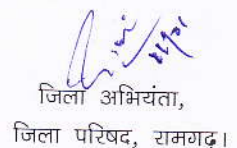 जिला अभियंता,
जिला परिषद, रामगढ़।